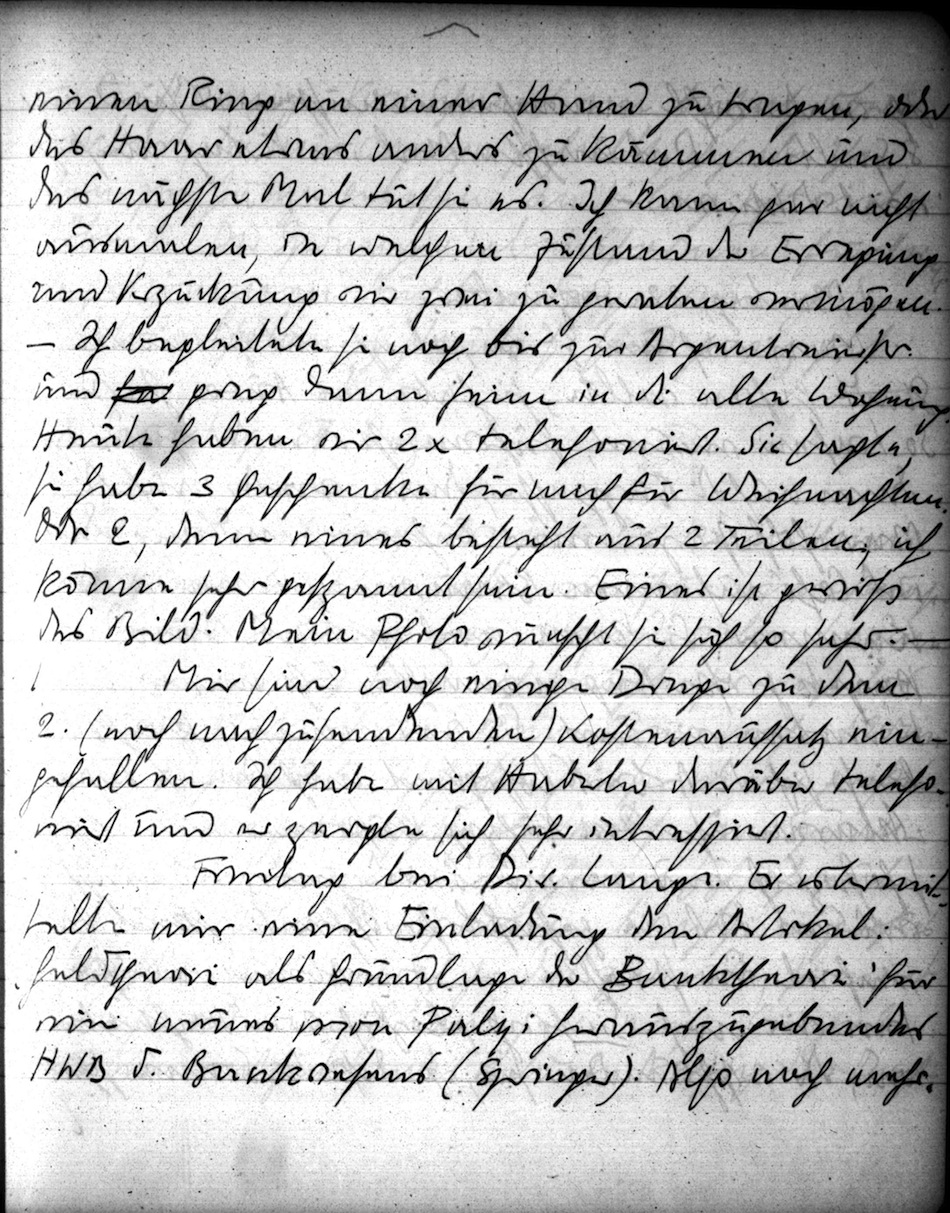 einen Ring an einer Hand zu tragen, oder
das Haar etwas anders zu kämmen und
das nächste Mal tut sie es. Ich kann gar nicht
ausmalen, in welchen Zustand der Erregung
und Verzückung wir zwei zu geraten vermögen.
— Ich begleitete sie noch bis zur Argentinierstr.
und ging dann heim in die alte Wohnung.
Heute haben wir 2x telefoniert. Sie sagte,
sie habe 3 Geschenke für mich für Weihnachten,
oder 2, denn eines besteht aus 2 Teilen; ich
könne sehr gespannt sein. Eines ist gewiss
das Bild. Mein Photo wünscht sie sich so sehr. —
Mir sind noch einige Dinge zu dem
2. (noch nachzusendenden) Kostenaufsatz ein-
gefallen. Ich habe mit Haberler darüber telefo-
niert und er zeigte sich sehr interessiert.
Freitag bei Dir. Lange. Er übermit-
telte mir eine Einladung den Artikel:
Geldtheorie als Grundlage der Banktheorie' für
ein neues von Palyi herauszugebendes
HWB d. Bankwesens (Springer). Also noch mehr.